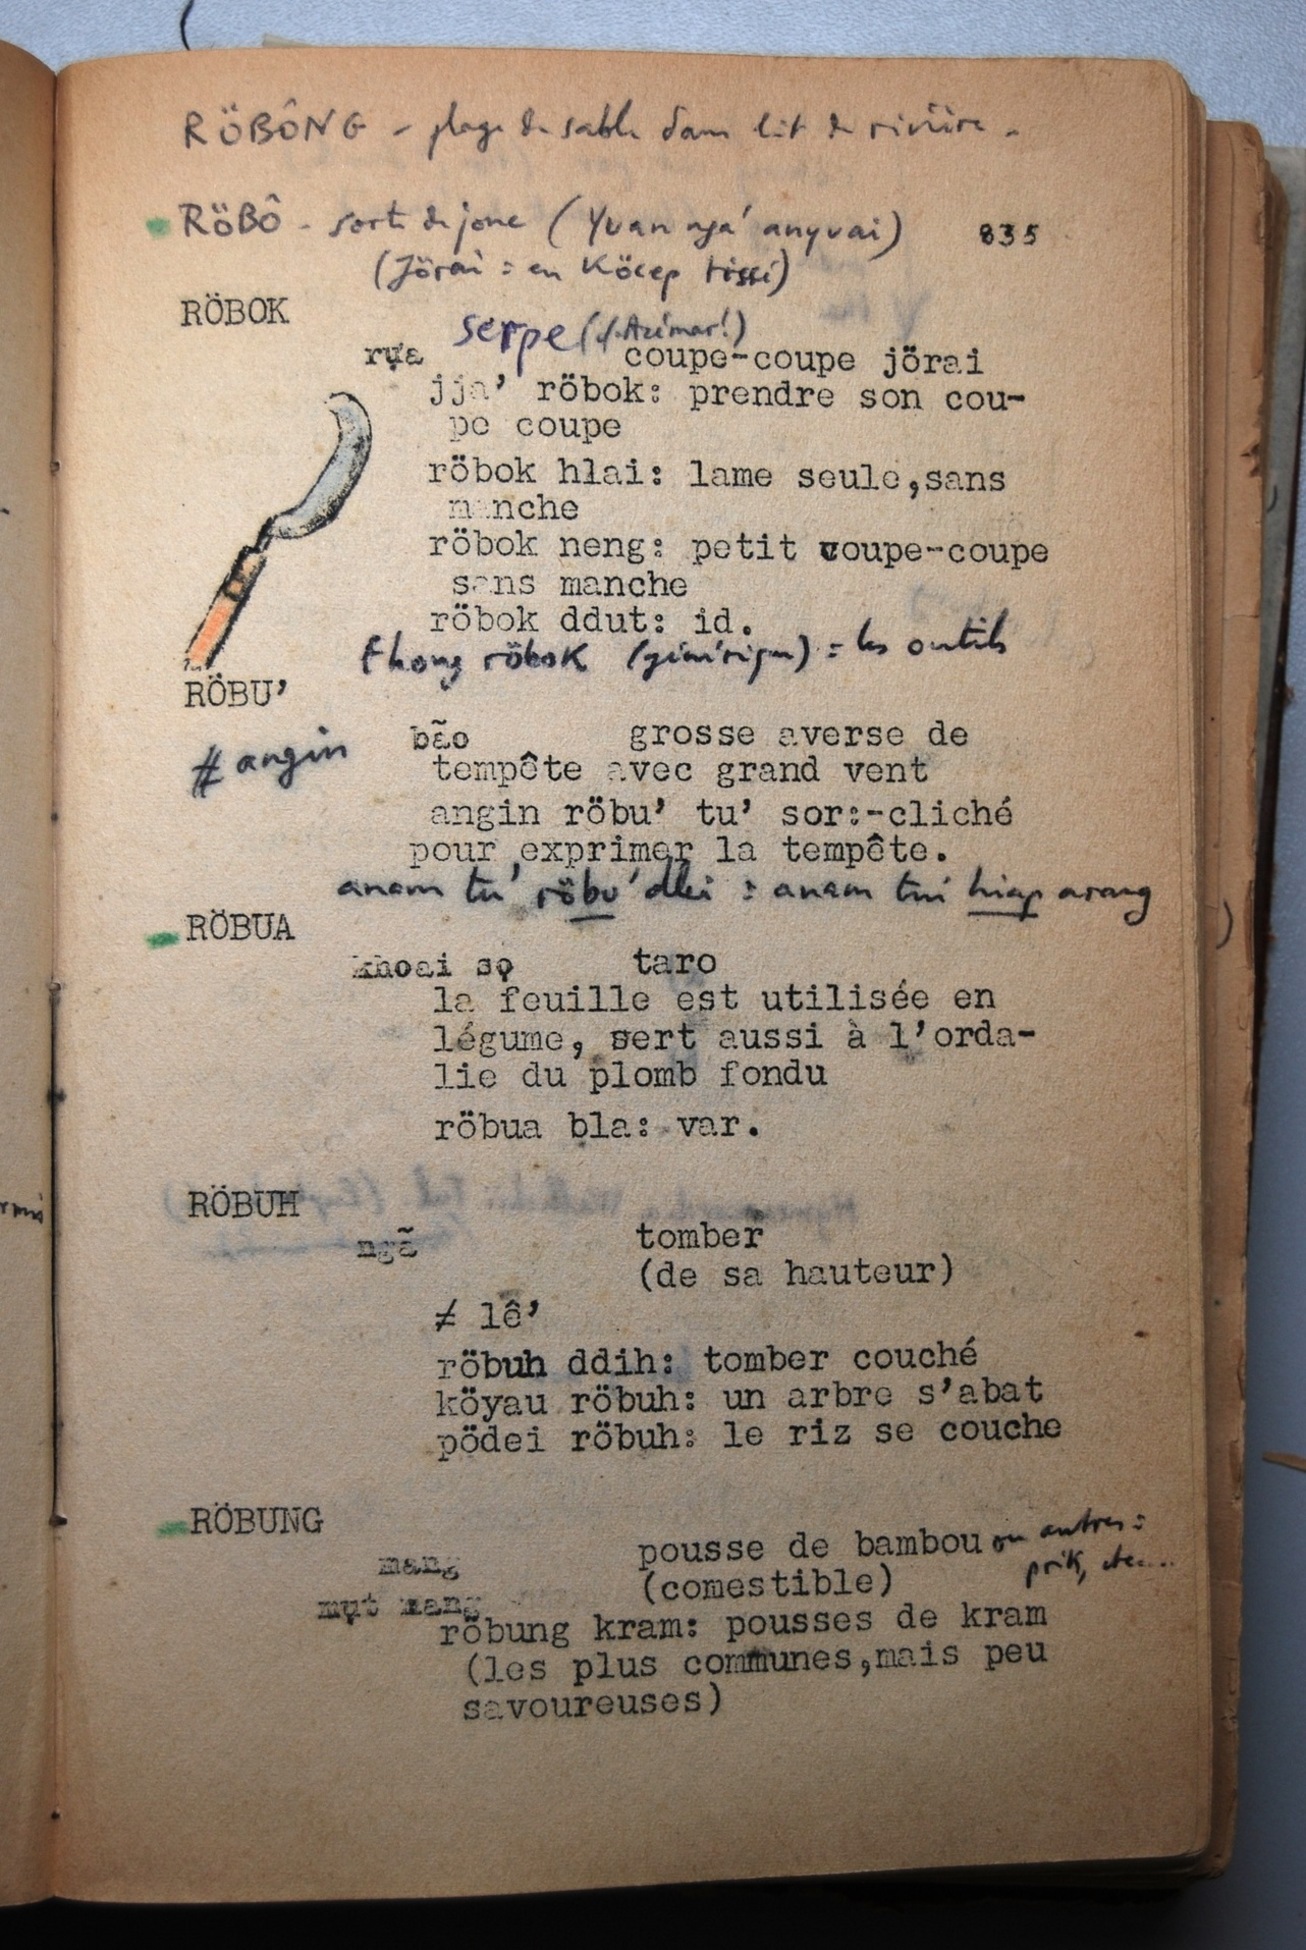 RÖBÔNG - plage de sable dans lit de rivière.
RÖBÔ - sorte de jonc (Yuan ngă' anyuai) 835
(Jörai = en Köcep tissé)
RÖBOK
serpe (cf. Azémar!)
rựa coupe-coupe jörai
jja' röbok: prendre son cou-
pe coupe
röbok hlai: lame seule,sans
manche
röbok neng: petit coupe-coupe
sans manche
röbok ddut: id.
thong röbok = les outils
RÖBU'
≠ angin bão grosse averse de
tempête avec grand vent
angin röbu' tu' sor:-cliché
pour exprimer la tempête.
anam tu' röbu' dlei = anam hiap arang
RÖBUA
khoai sọ taro
la feuille est utilisée en
légume, sert aussi à l'orda-
lie du plomb fondu
röbua bla: var.
RÖBUH
ngã tomber
(de sa hauteur)
≠ lê'
röbuh ddih: tomber couché
köyau röbuh: un arbre s'abat
pödei röbuh: le riz se couche
RÖBUNG
mang pousse de bambou ou autres :
(comestible) prik, etc...
mụt mang
röbung kram: pousses de kram
(les plus communes,mais peu
savoureuses)